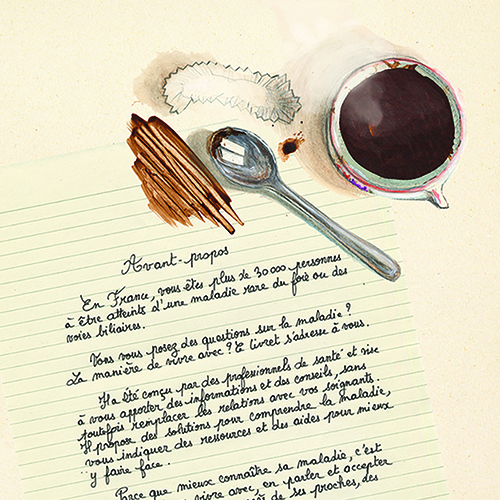 Avant-propos
En France, vous êtes plus de 30 000 personnes
à être atteints d'une maladie rare du foie ou des
voies biliaires.
Vous vous posez des questions sur la maladie ?
La manière de vivre avec ? Ce livret s'adresse à vous.
Il a été conçu par des professionnels de santé et vise
à vous apporter des informations et des conseils, sans
toutefois remplacer les relations avec vos soignants.
Il propose des solutions pour comprendre la maladie,
vous indiquer des ressources et des aides pour mieux
y faire face.
Parce que mieux connaître sa maladie, c'est
vivre avec, en parler et accepter
de ses proches, des